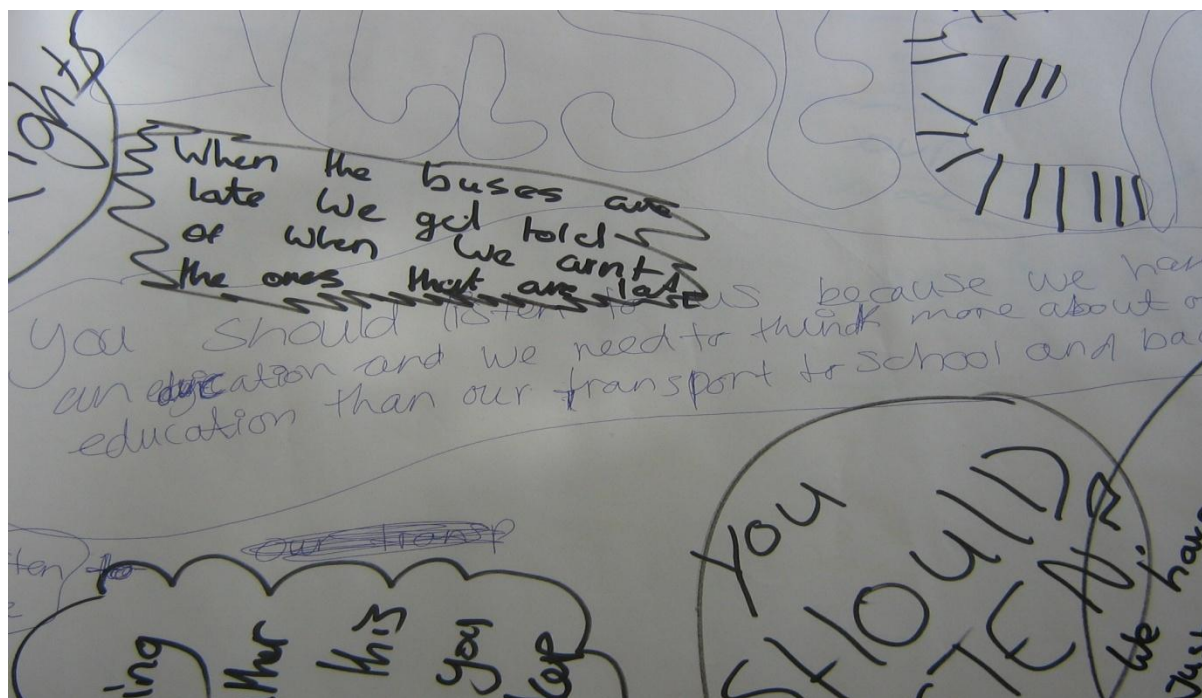 ights
When the buses are
late We get told
of when we arnt
the ones that are late
you should listen to us because we
an education and we need to think more about
education than our transport to school and
our transp
ing
ther
this
you
YOU
SHOULD
We